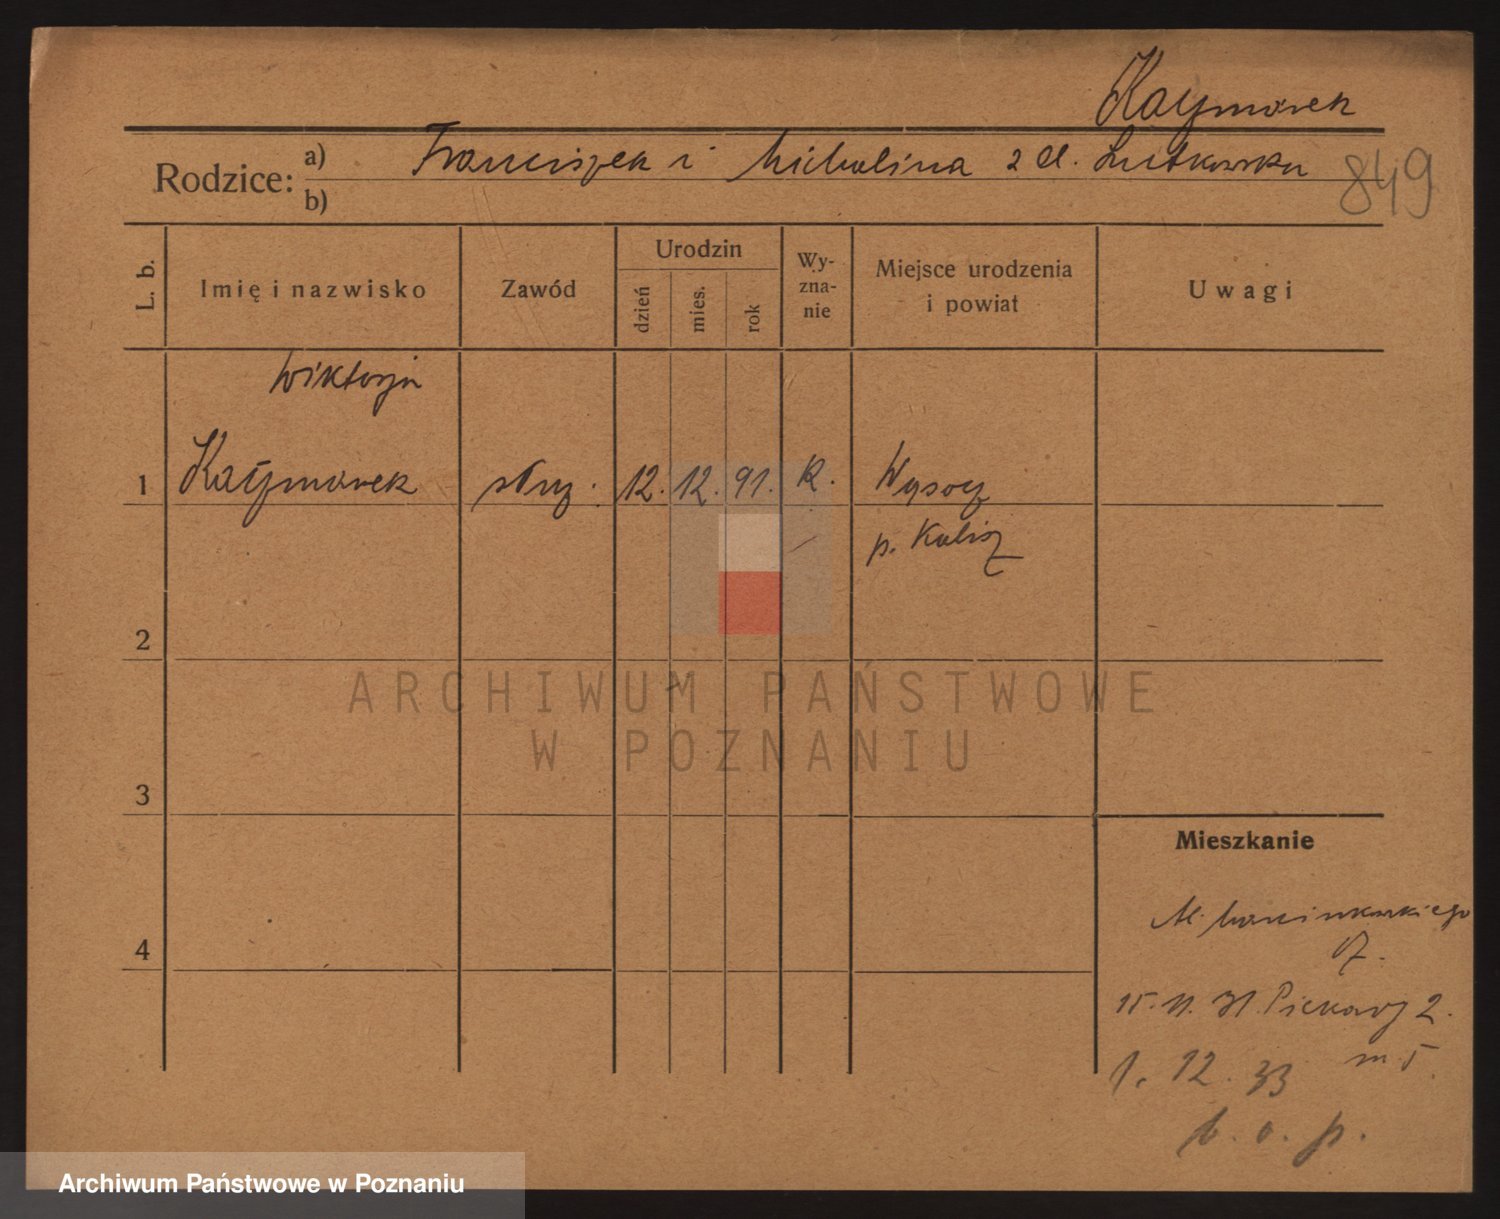 Kaźmierek
Rodzice: a) Franciszek i Michalina z d. Lutkowska 849
b)
L. b. Imię i nazwisko Zawód Urodzin dzień mies. rok Wy-zna-nie Miejsce urodzenia i powiat Uwagi
Wiktorja
1 służ. 12. 12. 91. R. Wysocz
p. Kalisz
2
ARCHIWUM PAŃSTWOWE
W POZNANIU
3
Mieszkanie
Al. Marcinkowskiego
4
7.
15. 11. 31. Piekary 2.
m 5.
1. 12. 33
b. o. p.
Archiwum Państwowe w Poznaniu